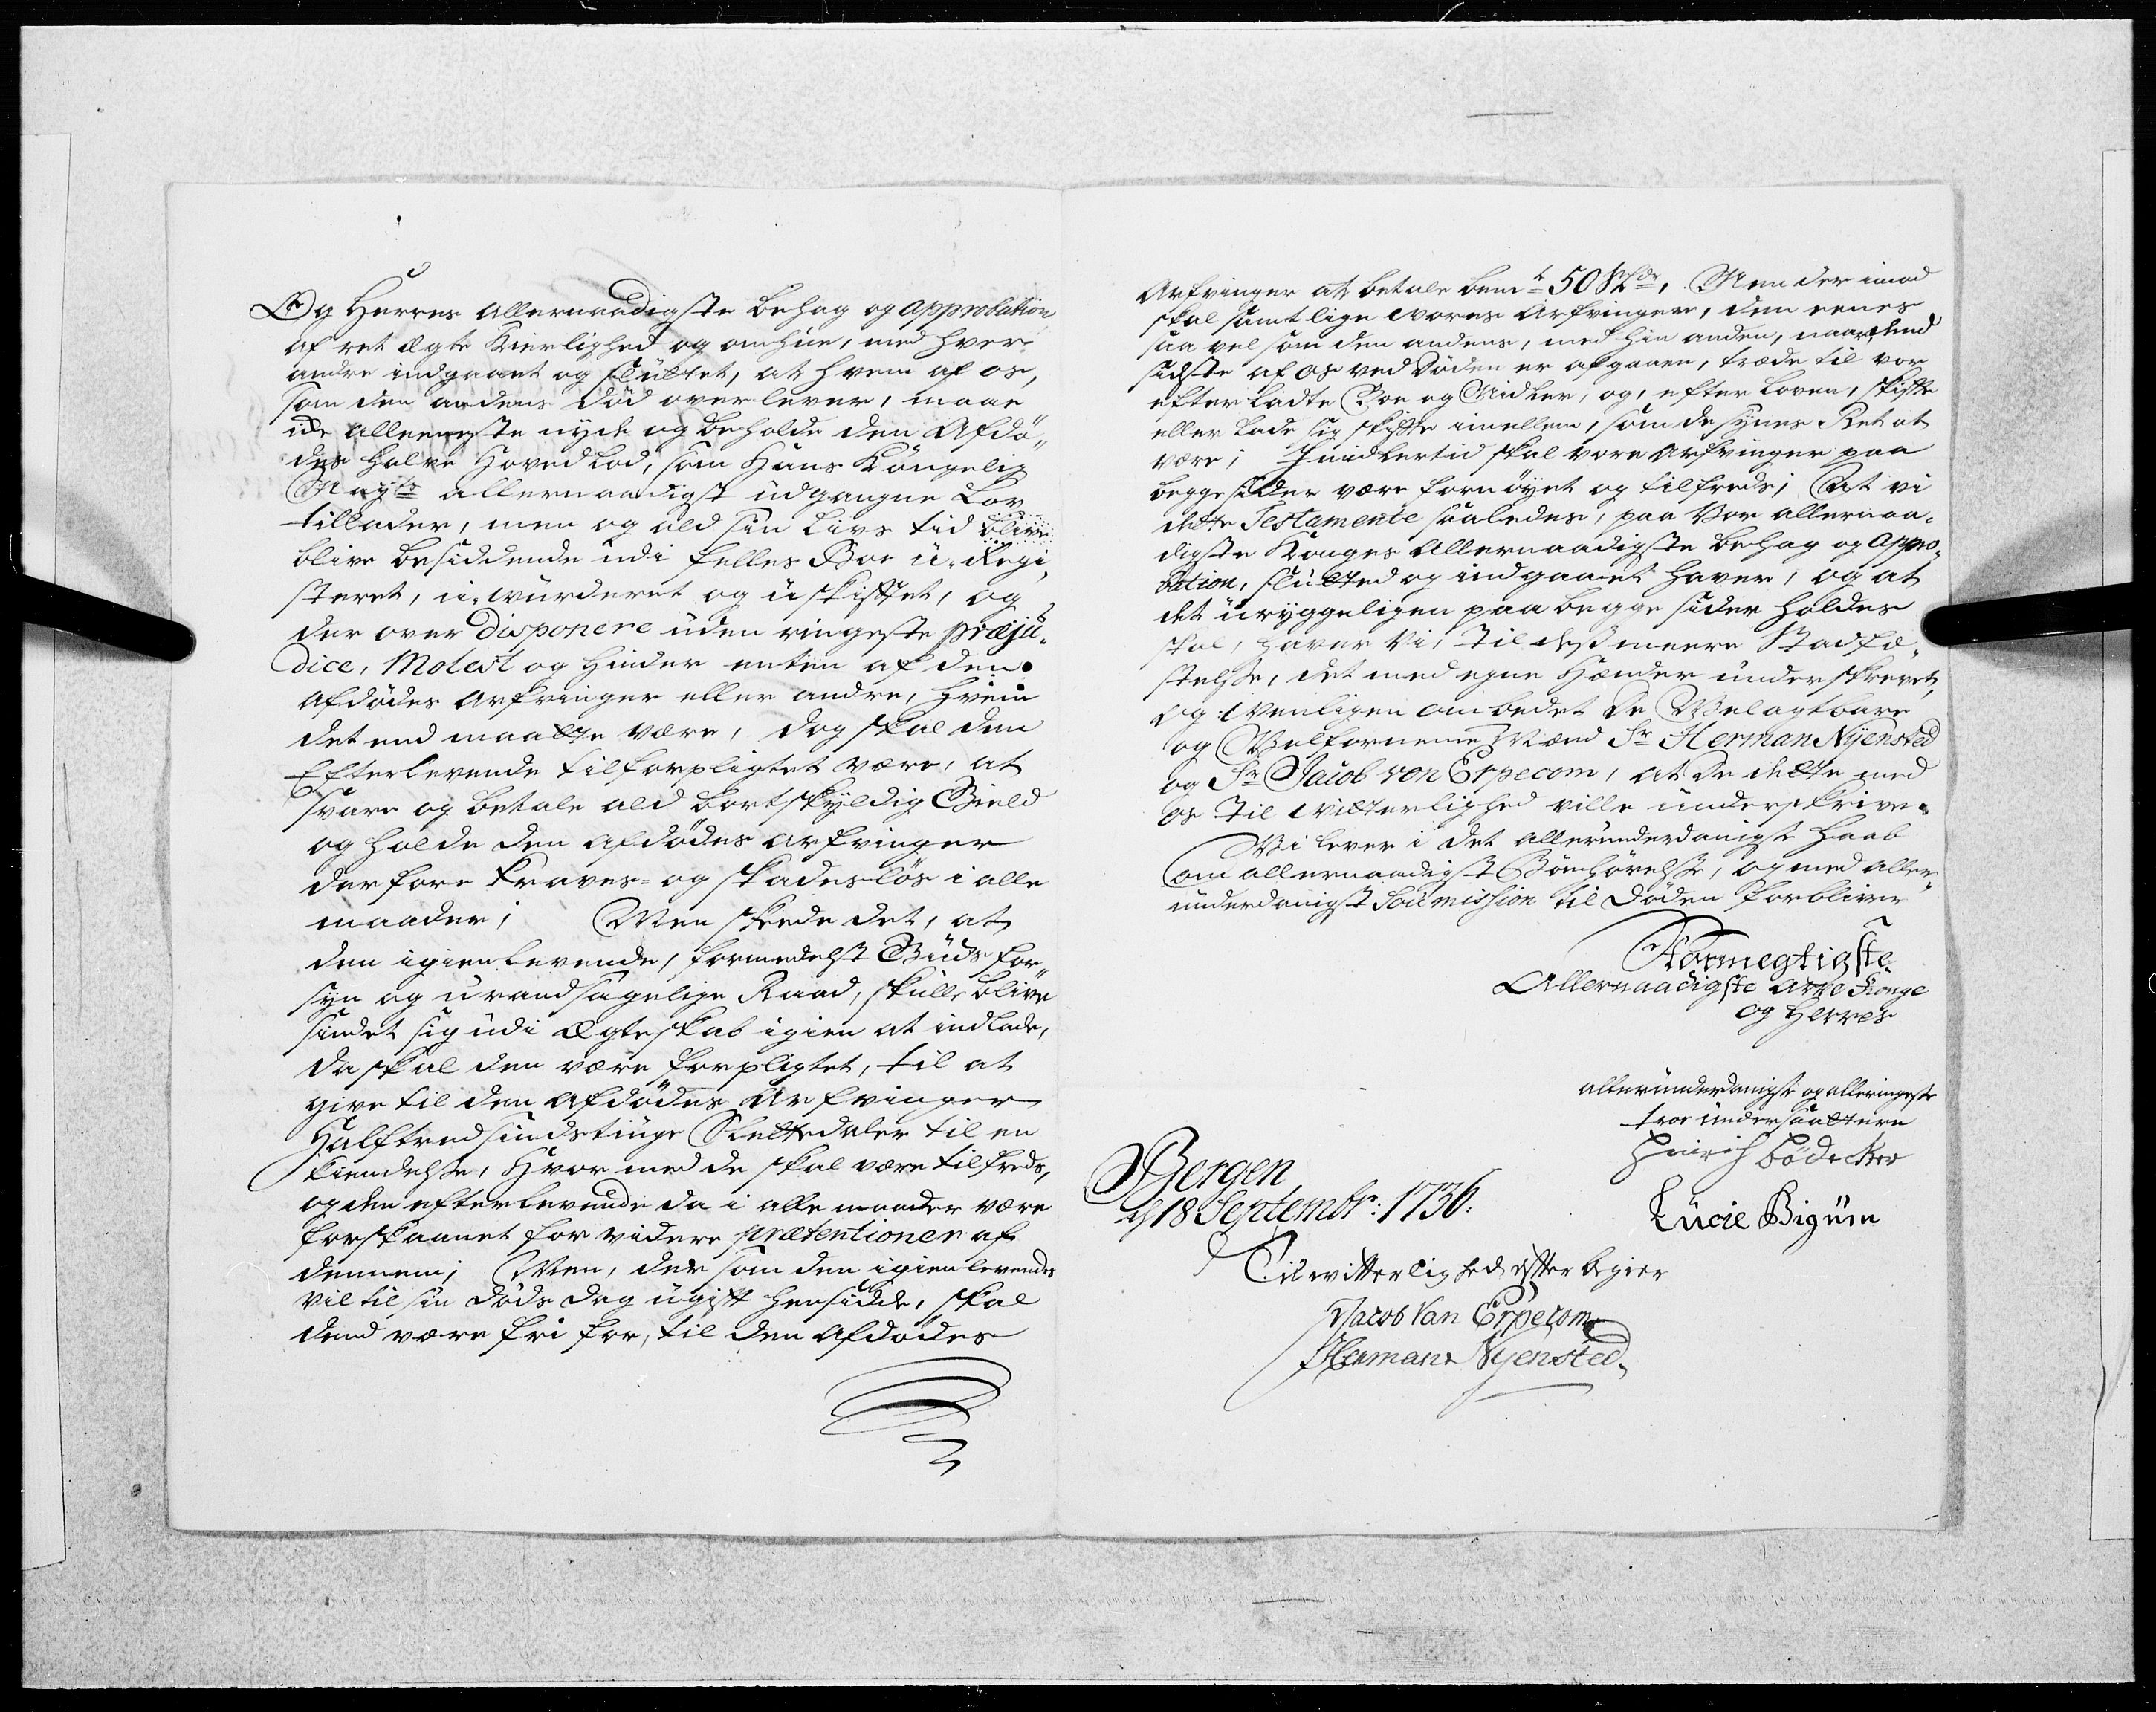 Og Herres allernaadigste behag og approbation
af ret ægte Kierlighed og omhue, med hver-
andre indgaaet og sluttet, at hvem af os,
som den andens død overlever, maae
ide alleeneste nyde og beholde den Afdø-
des halve Hovedlod, som Hans Kongelig
Mayts allernaadigst udgangne Lov
tillader, men og ald sin Livs tid blive
blive besiddende udi felles Boe u-Regi-
streret, u-wurderet og uskiftet, og
der over Disponere uden ringeste præju-
dice, Molest og Hinder enten af den
afdødes arfvinger eller andre, hvem
det end maatte være, dog skal den
Efterlevende tilforpligtet være, at
svare og betale ald bortskyldig Gield
og holde den afdødes arfvinger
derfore kraves- og skadesløs i alle
maader; Men skede det, at
den igienlevende, formedelst Guds for-
syn og urandsagelige Raad, skulle blive
sindet sig udi Ægteskab igien at indlade,
da skal den være forpligtet, til at
give til den Afdødes Arfvinger
Halftredsindstiuge Slettedaler til en
kiendelse, Hvormed de skal være tilfreds,
og den efterlevende da i alle maader være
forskaanet for videre prætentioner af
dennem; Men, dersom den igienlevende
vil til sin døds dag ugift hensidde, skal
dend være fri for, til den Afdødes
Arfvinger at betale bemte 50 Sldr, Men der imod
skal samtlige vores Arfvinger, den eenes
saa vel som den andens, med hin anden, naar dend
sidste af os ved døden er afgaaen, træde til vor
efterladte Boe og Midler, og, efter Loven, skifte
eller lade sig skifte imellem, som de synes Ret at
være; Imidlertid skal vore Arfvinger paa
begge sider være fornøyet og tilfreds; At vi
dette Testamente saaledes, paa Vor allernaa-
digste Konges Allernaadigste behag og Appro-
bation, sluttet og indgaaet haver, og at
det uryggeligen paa begge sider holdes
skal, haver Vi, til deß meere Stadfæ-
stelse, det med egne Hænder underskrevet,
og Wenligen ombedet de Welagtbare
og Welfornemme Mænd Sr Herman Nyensted
og Sr Jacob von Erpecom, at de dette med
os til Vitterlighed ville underskrive.
Vi lever i det allerunderdanigst haab
om allernaadigst Bønhørelse, og med aller-
underdanigst Soumission til døden forbliver
Stormegtigste
Allernaadigste Arve Konge
og Herres
allerunderdanigste og alleringeste
troe undersaattere
Hinrich Bödecker
Lucie Bigum
Bergen,
d 18 Septembr: 1736.
Til witterlighed efter begier
Jacob Van Erpecom
Herman Nyensted.